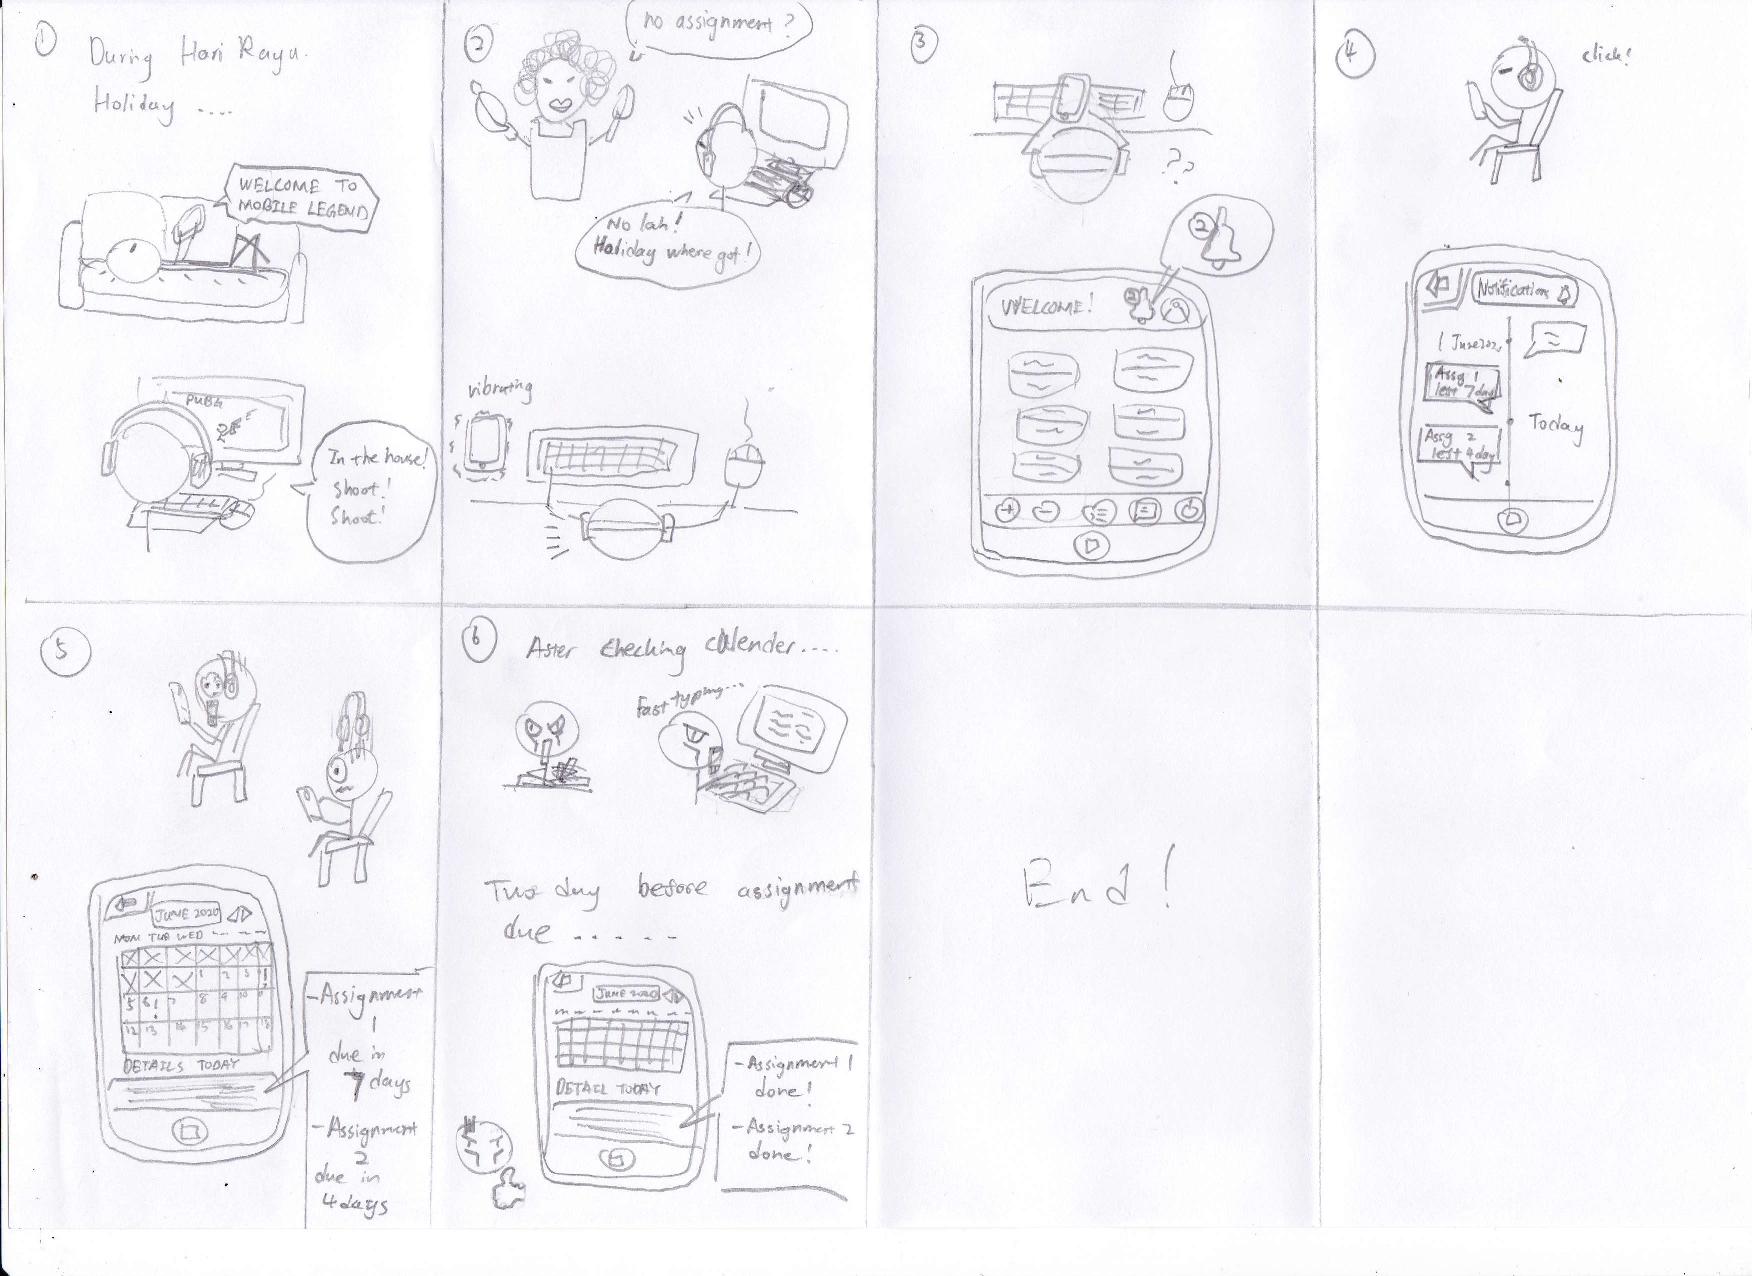 1
During Hari Raya
Holiday ....
WELCOME TO
MOBILE LEGEND
PUBG
In the house!
Shoot!
Shoot!
2
no assignment?
No lah!
Holiday where got!
vibrating
3
??
2
WELCOME!
2
4
click!
Notifications
1 June 202
Assg 1
left 7 day
Assg 2
left 4 day
Today
5
JUNE 2020
MON TUE WED
1 2 3 4
5 6! 7 8 9 10 11
12 13 14 15 16 17 18
DETAILS TODAY
- Assignment
1
due in
7 days
- Assignment
2
due in
4 days
6
After checking calender....
Fast typing...
Two day before assignment
due .....
JUNE 2020
DETAIL TODAY
- Assignment 1
done!
- Assignment 2
done!
End!